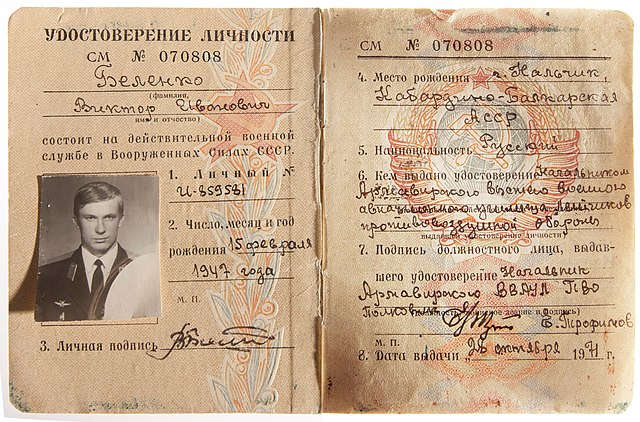 УДОСТОВЕРЕНИЕ ЛИЧНОСТИ
СМ № 070808
Беленко
(фамилия,
Виктор Иванович
имя и отчество)
состоит на действительной военной
службе в Вооруженных Силах СССР.
1. Личный №
И-859581
2. Число, месяц и год
рождения 15 февраля
1947 года
М. П.
3. Личная подпись
СМ № 070808
4. Место рождения г. Нальчик,
Кабардино-Балкарская
АССР
5. Национальность Русский
6. Кем выдано удостоверение Начальником
Армавирского высшего военного
авиационного училища лётчиков
противовоздушной обороны
выдавшего удостоверение личности)
7. Подпись должностного лица, выдав-
шего удостоверение Начальник
Армавирского ВВАУЛ ПВО
Полковник Е. Трофимов
М. П.
8. Дата выдачи „26 октября 1971 г.